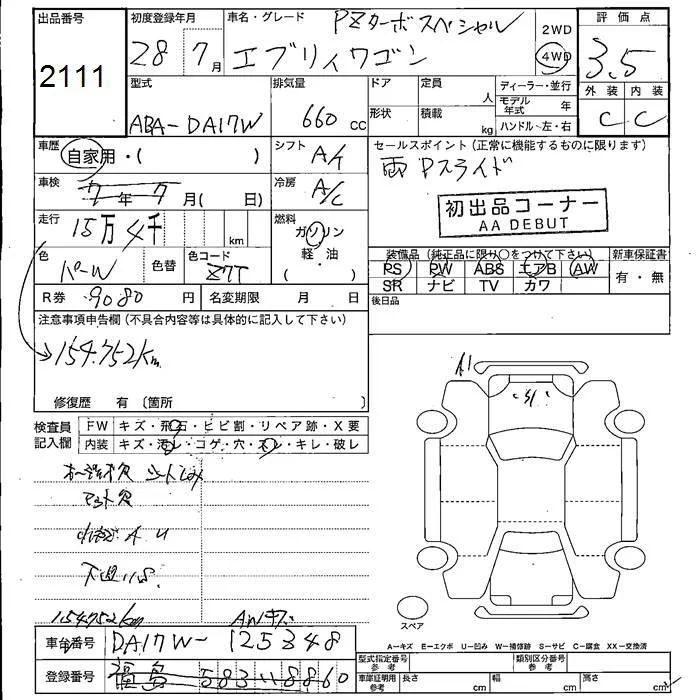 出品番号 2111
初度登録年月 28 7月
車名・グレード PZターボスペシャル
エブリィワゴン
2WD
4WD
評価点 3.5
外装 内装
C C
型式 ABA-DA17W
排気量 660 CC
ドア 定員 人
形状 積載 kg
ディーラー・並行
モデル年式 年
ハンドル・左・右
車歴 自家用・( )
シフト A/T
セールスポイント(正常に機能するものに限ります)
両Pスライド
車検 7年7月(日)
冷房 A/C
初出品コーナー
AA DEBUT
走行 15万4千 km
燃料 ガソリン
軽・油
( )
色 パールW
色替
色コード Z7T
装備品(純正品に限り○をつけて下さい)
PS PW ABS エアB AW
SR ナビ TV カワ
新車保証書
有・無
R券 9080円
名変期限 月 日
後日品
注意事項申告欄(不具合内容等は具体的に記入して下さい)
154.752km
修復歴 有〔箇所
A1
検査員記入欄
FW キズ・飛石・ヒビ割・リペア跡・X要
内装 キズ・汚レ・コゲ・穴・スレ・キレ・破レ
シートしみ
マット欠
A U
154752km
AWキズ
スペア
A-キズ E-エクボ U-凹み W-補修跡 S-サビ C-腐食 XX-交換済
車台番号 DA17W-125348
登録番号 福島 583 8860
型式指定番号 参考
類別区分番号 参考
車庫証明用 参考
長さ cm
幅 cm
高さ cm